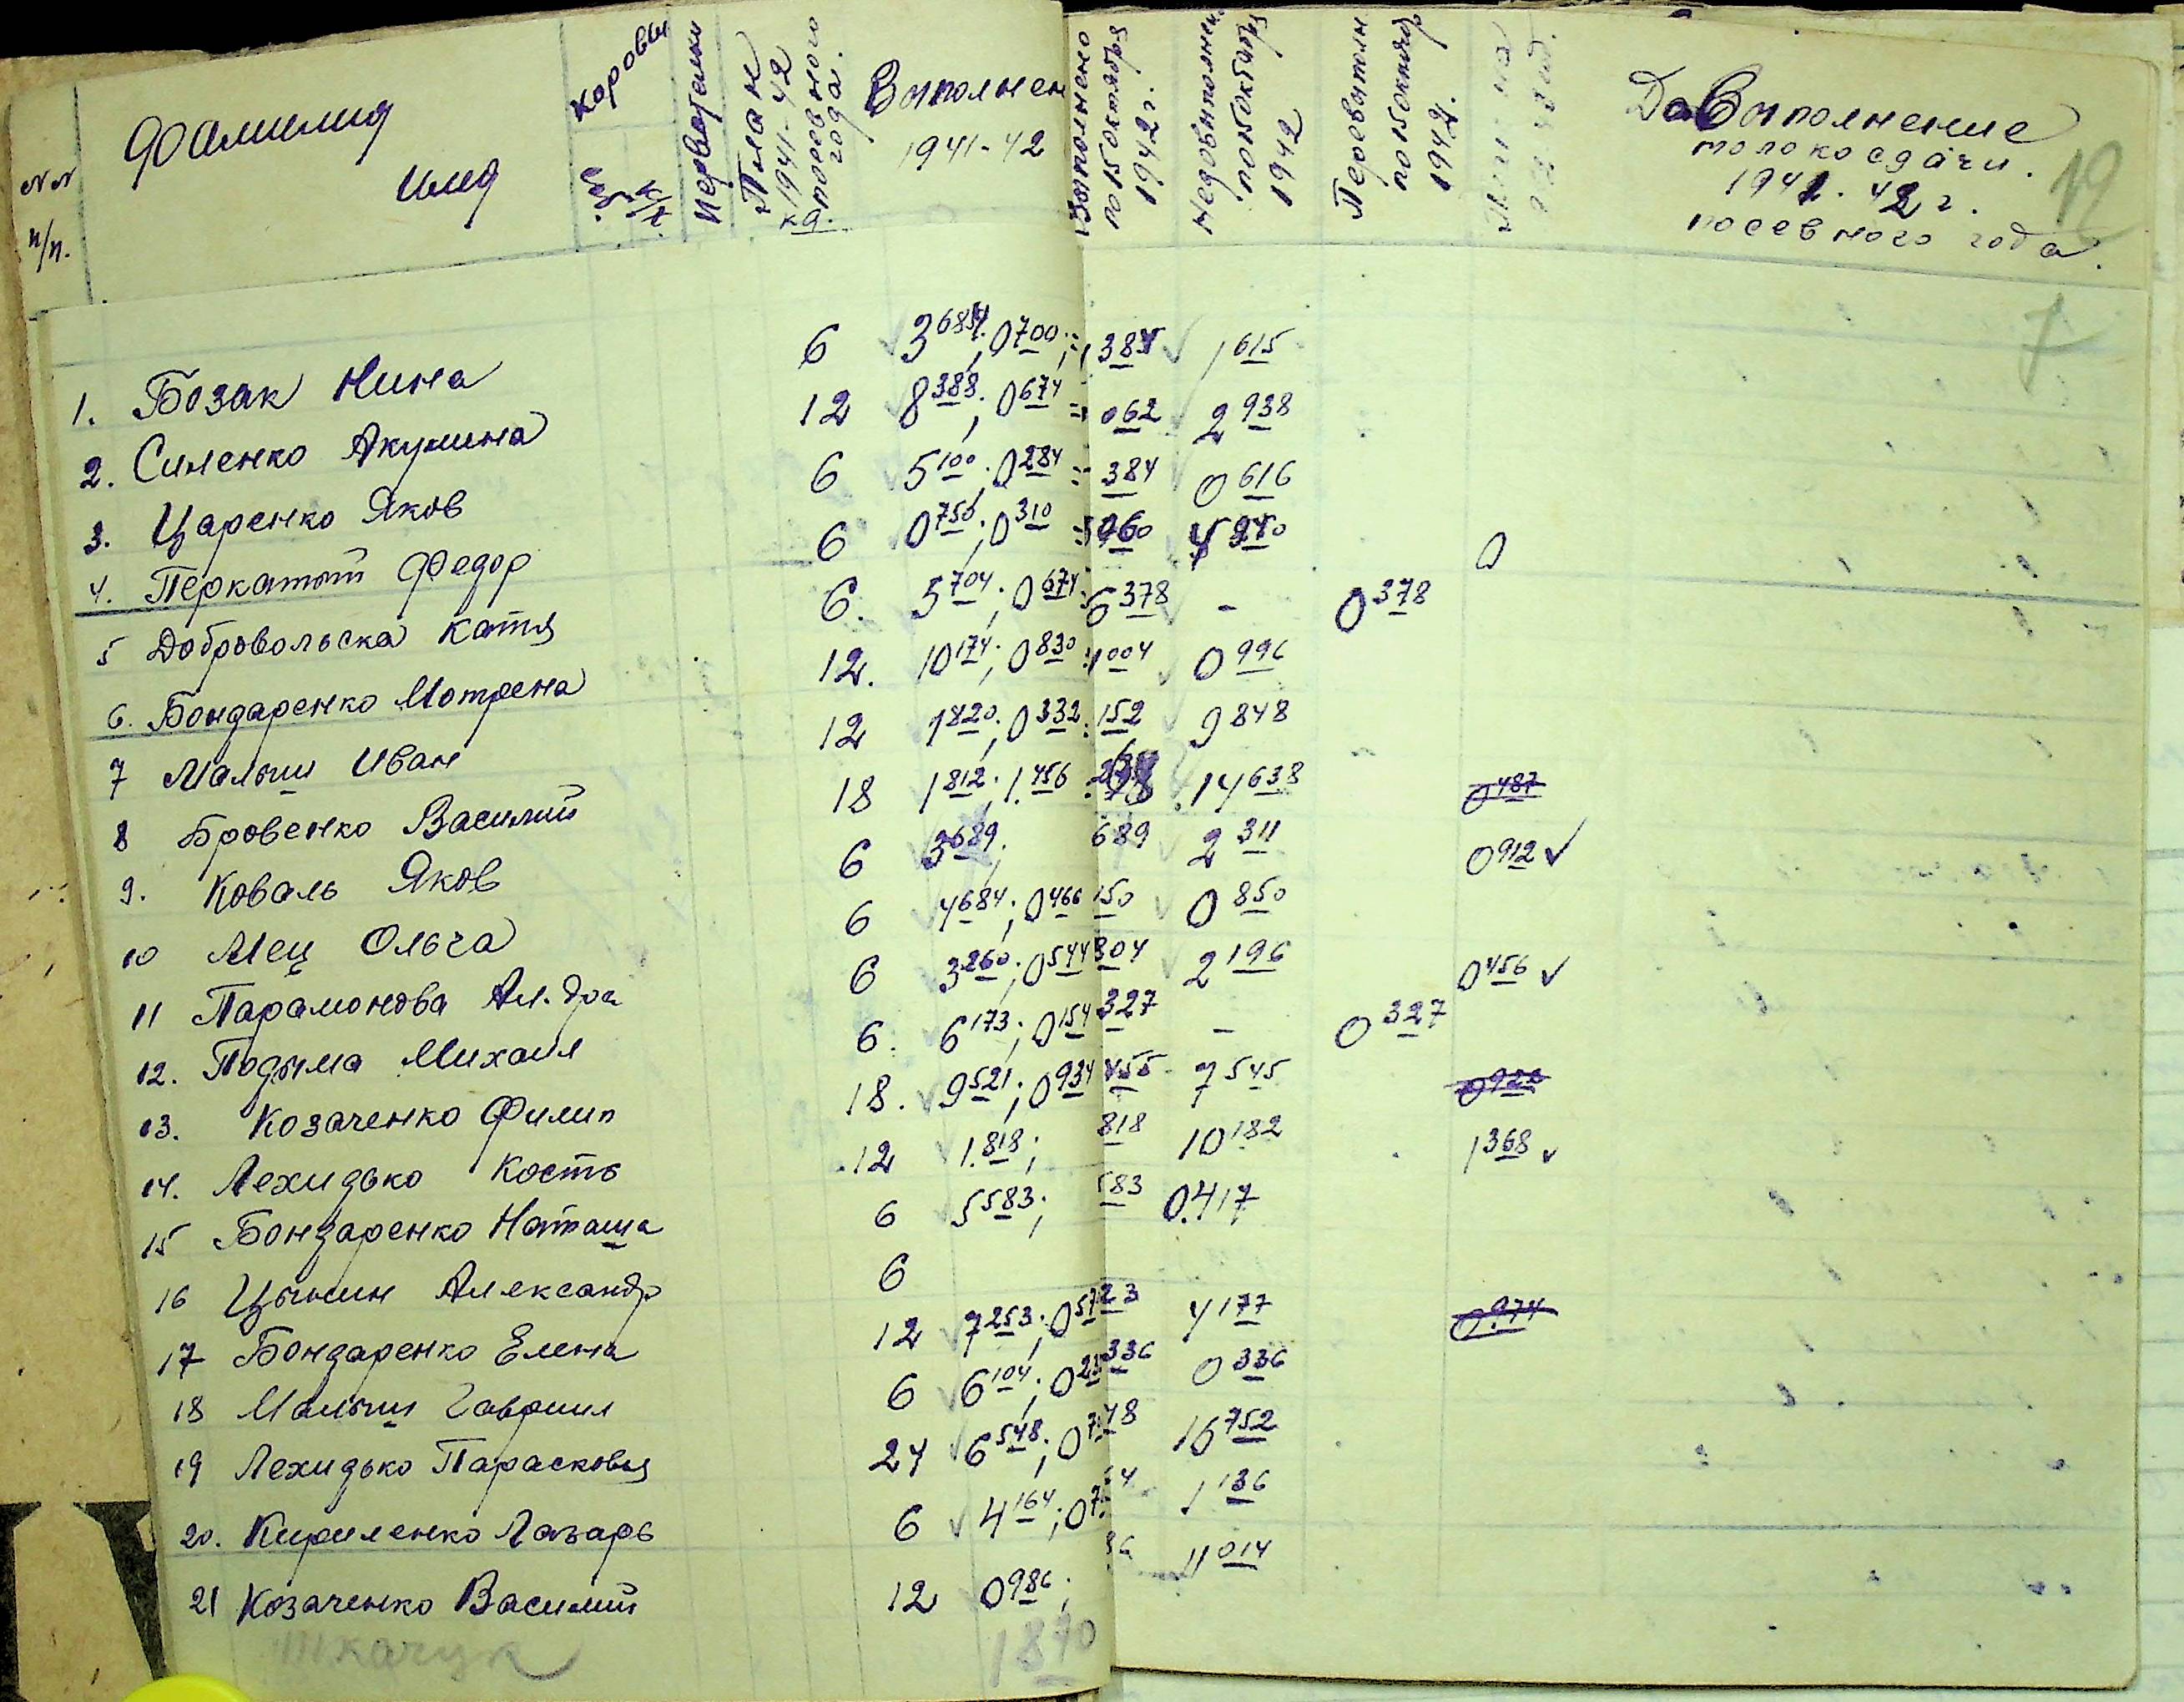 NN п/п.
Фамилия имя
Коровы
Первотелки
План 1941-42 посевного года.
кд.
Выполнен 1941-42
Выполнено по 15 октября 1942 г.
Недовыполнен. по 15 октября 1942
Перевыполн по 15 октября 1942.
Довыполнение
молокосдачи.
1941-42 г.
посевного года.
12
7
1. Бозак Нина 6 3684; 0700; 384 1615
2. Силенко Акулина 12 8388; 0674 = 062 2938
3. Царенко Яков 6 5100; 0284 = 384 0616
4. Перкатый Федор 6 0750; 0310 = 060 4940 0
5 Добровольска Катя 6. 5704; 0674: 6378 - 0378
6. Бондаренко Мотрена 12. 10174; 0830 1004 0996
7 Малыш Иван 12 1820; 0332: 152 9848
8 Бровенко Василий 18 1812; 1.456 14638 0487
9. Коваль Яков 6 3689; 689 2311 0912 ✓
10 Мец Ольга 6 4684; 0466 150 0850
11 Парамонова Ал.дра 6 3260; 0544 804 2196 0456 ✓
12. Подыма Михаил 6. 6173; 0154 327 - 0327
13. Козаченко Филип 18. 9521; 0934 455 7545 0926
14. Лехидько Кость 12 1.818; 818 10182 1368 ✓
15 Бондаренко Наташа 6 5583; 583 0.417
16 Цымин Александр 6
17 Бондаренко Елена 12 7253; 057 23 4177 0.974
18 Малыш Гаврил 6 6104; 023 336 0336
19 Лехидько Парасковья 24 6548; 07 48 16752
20. Кириленко Лазарь 6 4164; 07 64 1136
21 Козаченко Василий 12 0986; 86 11014
Ткачук 1870